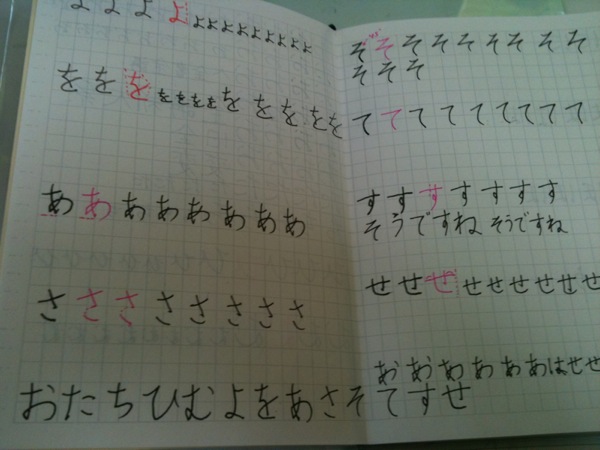 よ よ よ よ よよよよよよよよよよ
を を を をををを を を を を を
あ あ あ あ あ あ あ あ
さ さ さ さ さ さ さ さ
そ そ そ そ そ そ そ そ そ
そ そ そ
て て て て て て て て て
す す す す す す す
そうですね そうですね
せ せ せ せ せ せ せ せ せ
お お あ あ あ あ は せ せ
おたちひむよをあさそてすせ